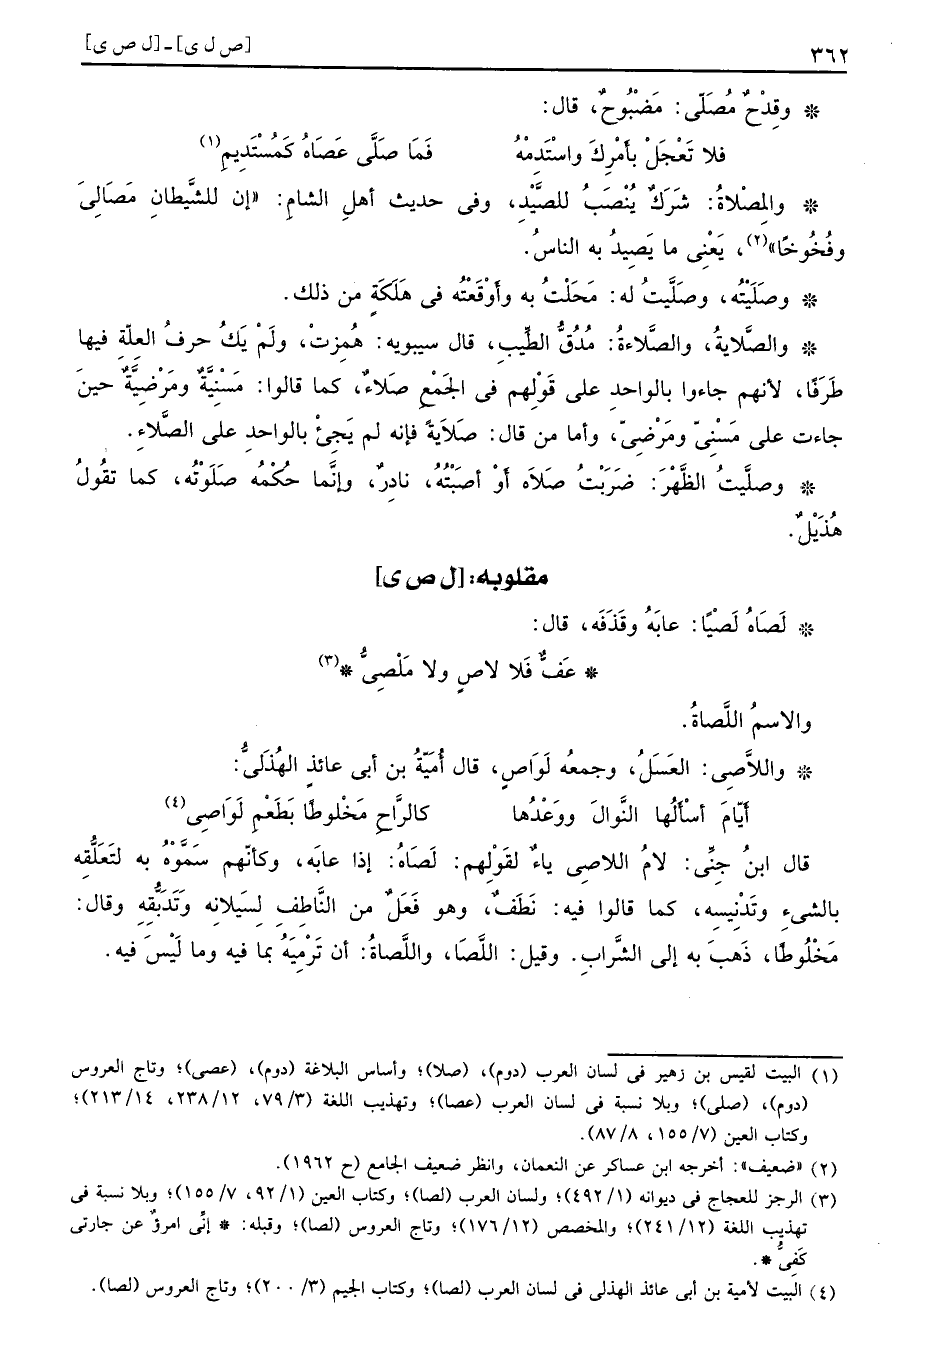 ٣٦٢ [ص ل ى] ـ [ل ص ى]
* وقِدْحٌ مُصَلّى: مَضْبُوحٌ، قال:
فلا تَعْجَلْ بأَمْرِكَ واسْتَدِمْهُ فَمَا صَلَّى عَصَاهُ كَمُسْتَدِيمِ(١)
* والمِصْلاةُ: شَرَكٌ يُنْصَبُ للصَّيْدِ، وفى حديث أهلِ الشام: «إن للشَّيطانِ مَصَالىَ
وفُخُوخًا»(٢)، يَعْنِى ما يَصِيدُ به الناسُ.
* وصَلَيْتُه، وصَلَّيتُ له: مَحَلْتُ به وأَوْقَعْتُه فى هَلَكَةٍ من ذلك.
* والصَّلايةُ، والصَّلاءةُ: مُدُقُّ الطِّيبِ، قال سيبويه: هُمِزتْ، ولَمْ يَكُ حرفُ العلّةِ فيها
طَرَفًا، لأنهم جاءوا بالواحدِ على قَوْلِهم فى الجَمْعِ صَلاءٌ، كما قالوا: مَسْنِيَّةٌ ومَرْضِيَّةٌ حينَ
جاءت على مَسْنِىّ ومَرْضِىّ، وأما من قال: صَلاَيةً فإنه لم يَجِئْ بالواحدِ على الصَّلاءِ.
* وصلَّيتُ الظَّهْرَ: ضَرَبْتُ صَلاَه أوْ أصَبْتُهُ، نادرٌ، وإنَّما حكْمُه صَلَوْتُه، كما تقُولُ
هُذَيْلٌ.
مقلوبه: [ل ص ى]
* لَصَاهُ لَصْيًا: عابَهُ وقَذَفَه، قال:
* عَفٌّ فَلا لاصٍ ولا مَلْصِىُّ *(٣)
والاسمُ اللَّصاةُ.
* واللاَّصِى: العَسَلُ، وجمعُه لَوَاصٍ، قال أُمَيَّةُ بن أبى عائذٍ الهُذَلىُّ:
أيّامَ أسْأَلُها النَّوالَ ووَعْدُها كالرَّاحِ مَخْلوطًا بطَعْمِ لَوَاصِى(٤)
قال ابنُ جِنِّى: لامُ اللاصِى ياءٌ لقَوْلِهم: لَصَاهُ: إذا عابَه، وكأنّهم سَمَّوْهُ به لتَعلُّقِه
بالشىءِ وتَدْنيسِه، كما قالوا فيه: نَطَفٌ، وهو فَعَلٌ من النَّاطفِ لسيَلانه وتَدَبُّقِهِ وقال:
مَخْلُوطًا، ذهبَ به إلى الشَّرابِ. وقيل: اللَّصَا، واللَّصاةُ: أن تَرْمِيَهُ بما فيه وما لَيْسَ فيه.
(١) البيت لقيس بن زهير فى لسان العرب (دوم)، (صلا)؛ وأساس البلاغة (دوم)، (عصى)؛ وتاج العروس
(دوم)، (صلى)؛ وبلا نسبة فى لسان العرب (عصا)؛ وتهذيب اللغة (٣/ ٧٩، ١٢/ ٢٣٨، ١٤/ ٢١٣)؛
وكتاب العين (٧/ ١٥٥، ٨/ ٨٧).
(٢) «ضعيف»: أخرجه ابن عساكر عن النعمان، وانظر ضعيف الجامع (ح ١٩٦٢).
(٣) الرجز للعجاج فى ديوانه (١/ ٤٩٢)؛ ولسان العرب (لصا)؛ وكتاب العين (١/ ٩٢، ٧/ ١٥٥)؛ وبلا نسبة فى
تهذيب اللغة (١٢/ ٢٤١)؛ والمخصص (١٢/ ١٧٦)؛ وتاج العروس (لصا)؛ وقبله: * إنِّى امرؤٌ عن جارتى
كَفِىُّ *.
(٤) البيت لأمية بن أبى عائذ الهذلى فى لسان العرب (لصا)؛ وكتاب الجيم (٣/ ٢٠٠)؛ وتاج العروس (لصا).